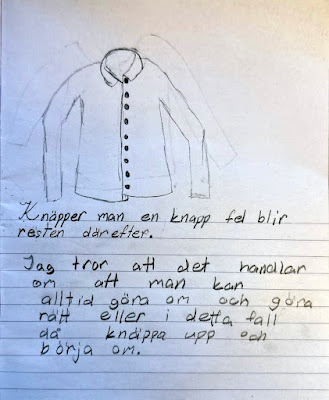 Knäpper man en knapp fel blir
resten därefter.
Jag tror att det handlar
om att man kan
alltid göra om och göra
rätt eller i detta fall
då knäppa upp och
börja om.